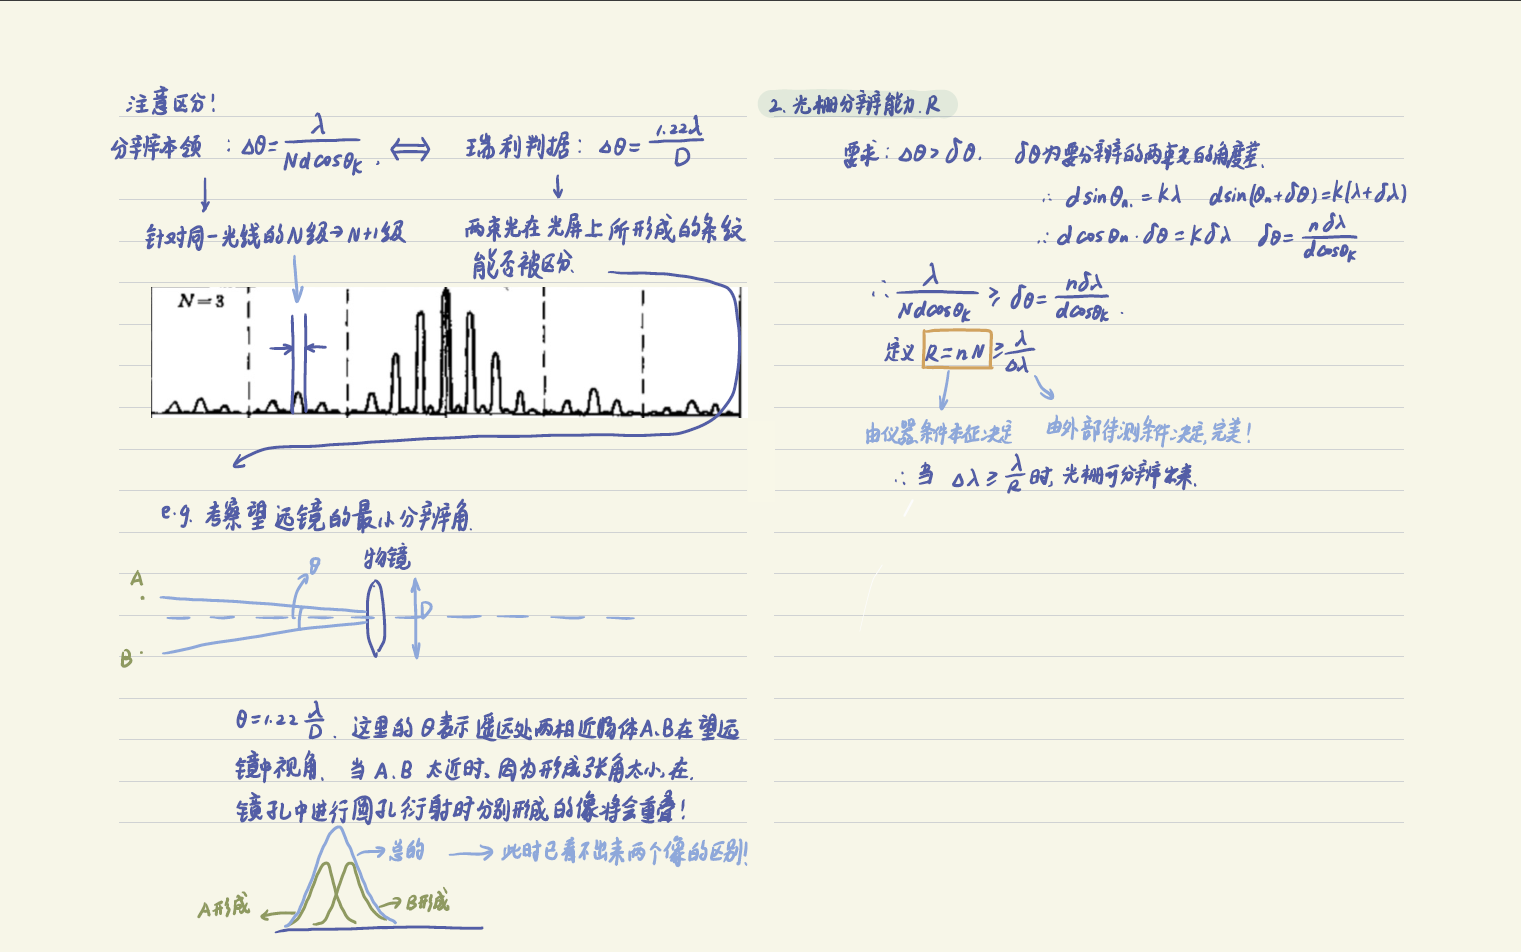 注意区分!
分辨本领 : Δθ= λ/(Ndcosθk) . ⟺ 瑞利判据: Δθ= 1.22λ/D
针对同一光线的N级→N+1级
两束光在光屏上所形成的条纹
能否被区分.
N=3
e.g. 考察望远镜的最小分辨角.
物镜
θ
A
D
B
θ=1.22 λ/D . 这里的θ表示遥远处两相近物体A.B在望远
镜中视角. 当A.B 太近时、因为形成张角太小,在.
镜孔中进行圆孔衍射时分别形成的像将会重叠!
总的 → 此时已看不出来两个像的区别!
A形成
B形成
2. 光栅分辨能力.R
要求: Δθ>δθ. δθ为要分辨的两束光的角度差.
∴ dsinθn.=kλ dsin(θn+δθ)=k(λ+δλ)
∴ dcosθn·δθ=kδλ δθ= nδλ/(dcosθk)
∴ λ/(Ndcosθk) ≥ δθ= nδλ/(dcosθk) .
定义 R=nN ≥ λ/Δλ
由仪器条件本征决定 由外部待测条件决定,完美!
∴ 当 Δλ≥ λ/R 时, 光栅可分辨出来.